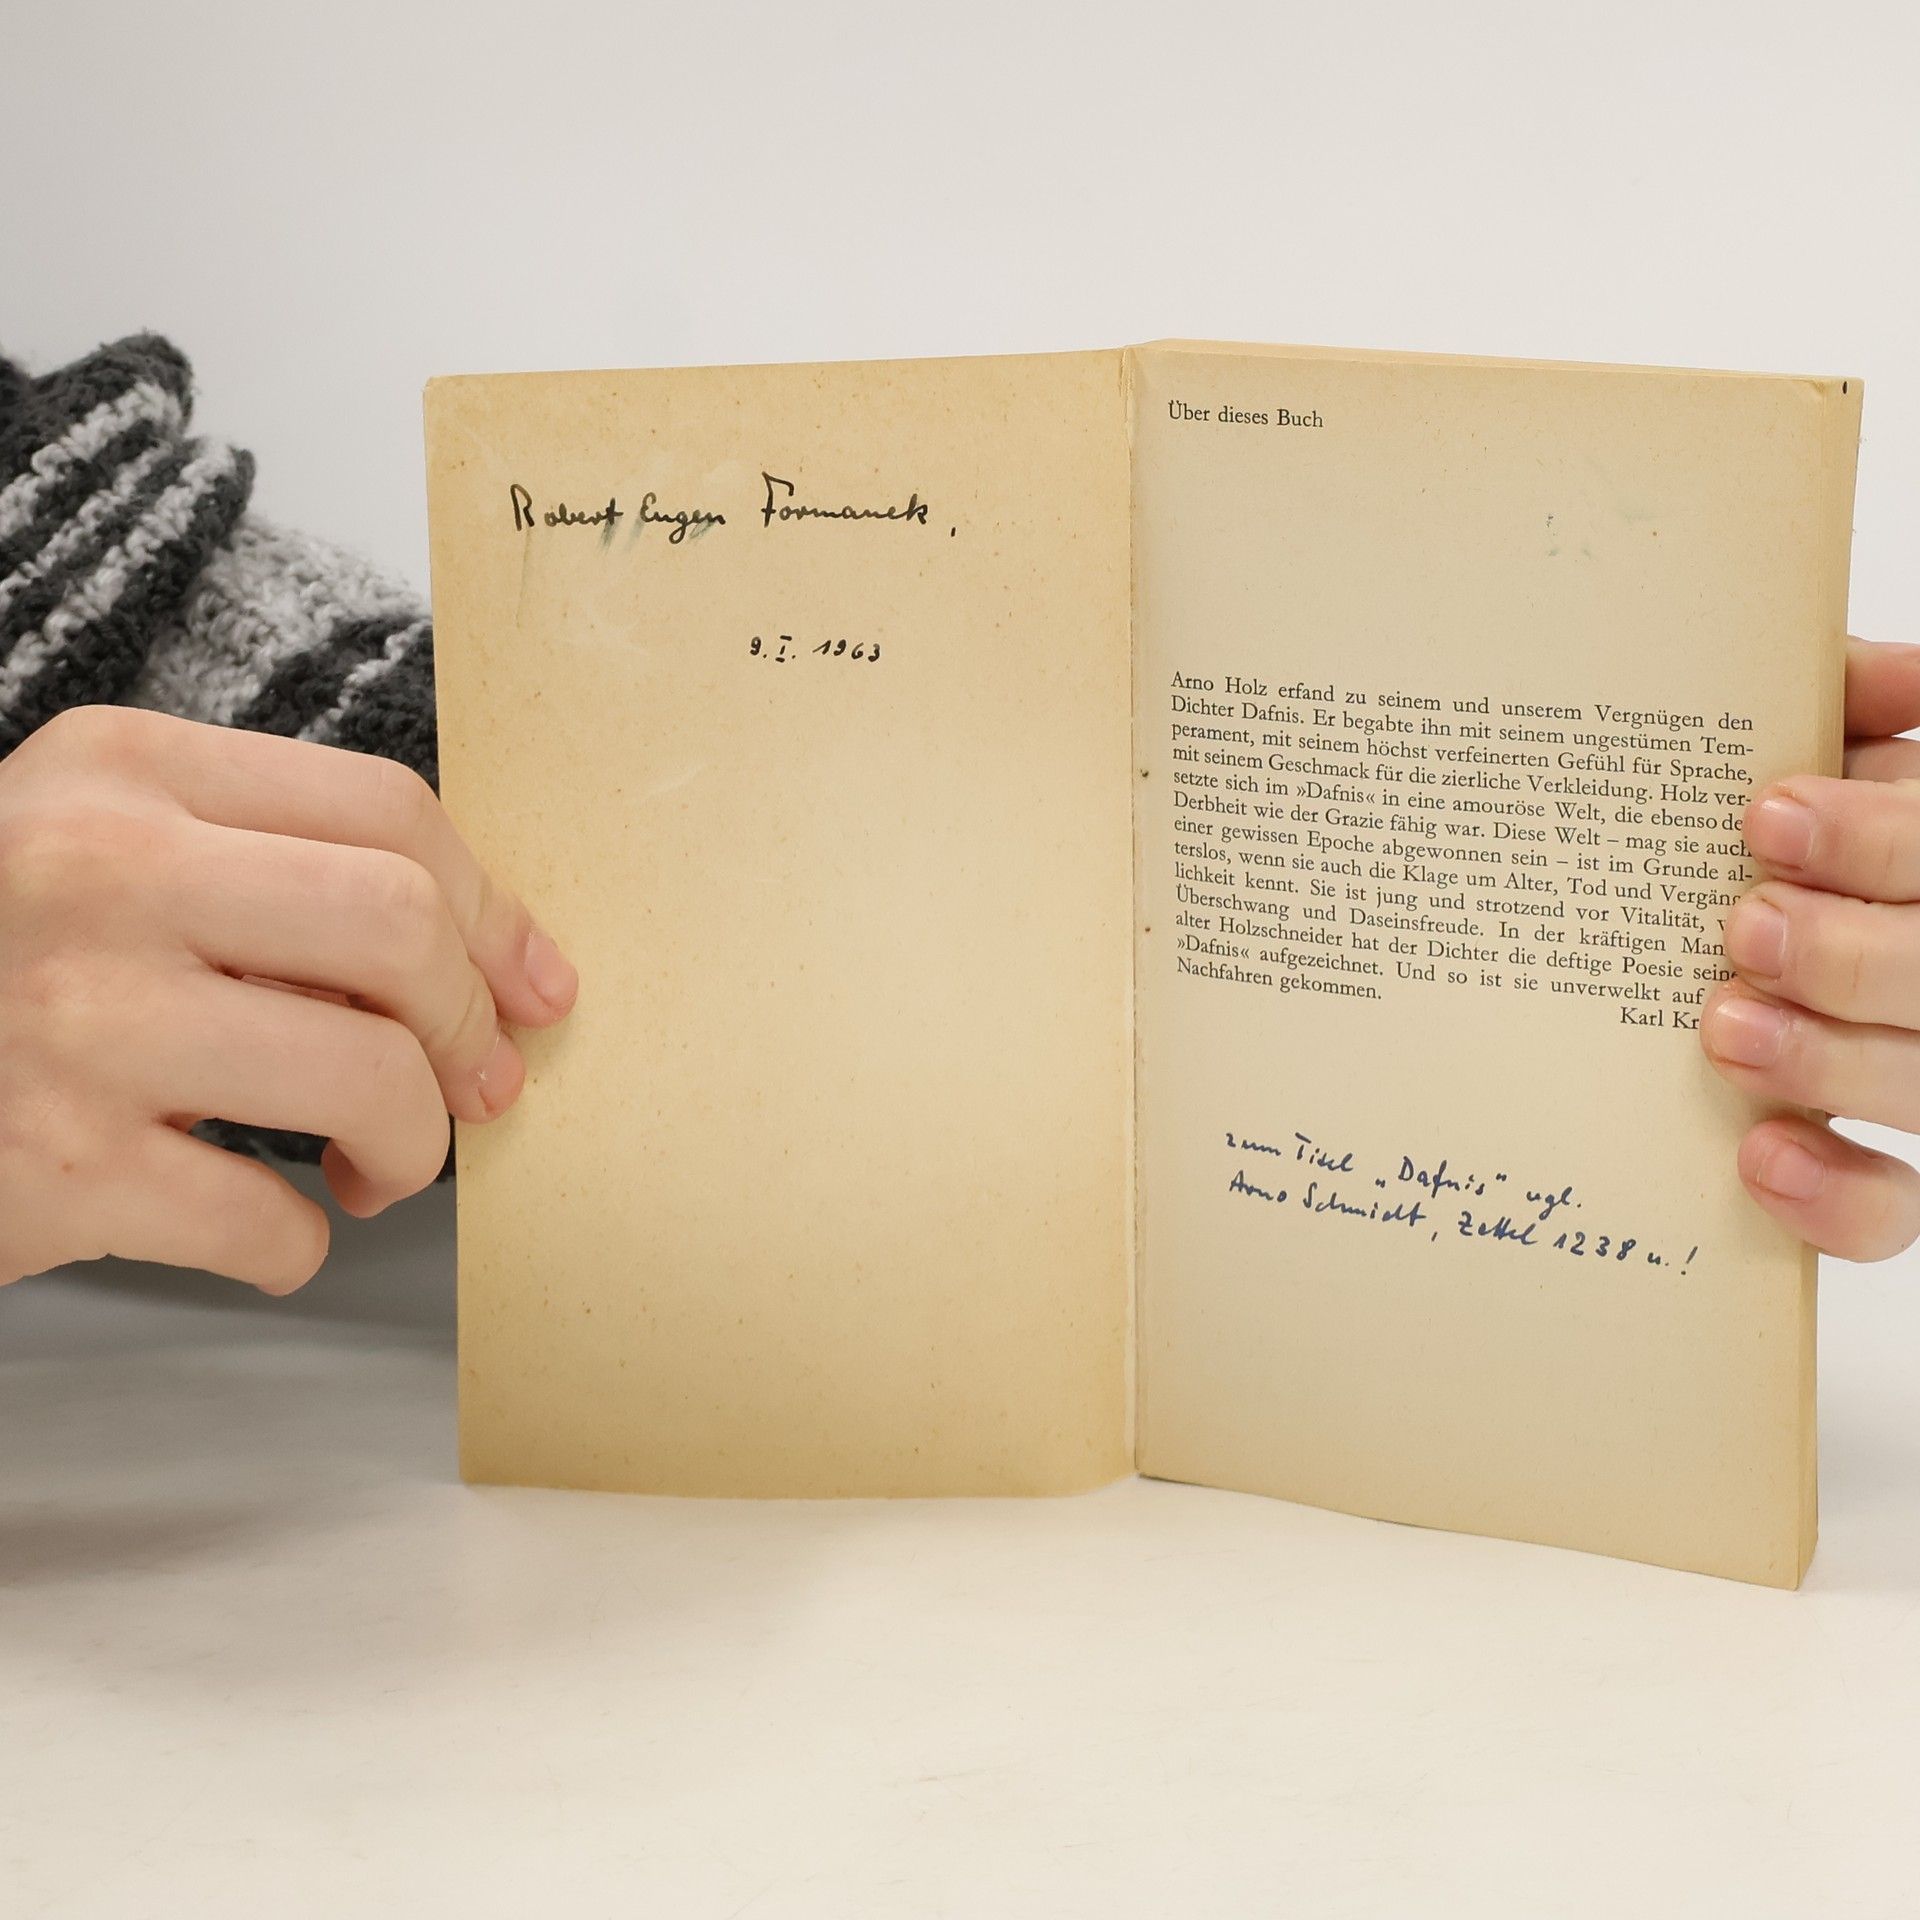 Robert Eugen Formanek,
9. I. 1963
Über dieses Buch
Arno Holz erfand zu seinem und unserem Vergnügen den
Dichter Dafnis. Er begabte ihn mit seinem ungestümen Tem-
perament, mit seinem höchst verfeinerten Gefühl für Sprache,
mit seinem Geschmack für die zierliche Verkleidung. Holz ver-
setzte sich im »Dafnis« in eine amouröse Welt, die ebenso de
Derbheit wie der Grazie fähig war. Diese Welt – mag sie auch
einer gewissen Epoche abgewonnen sein – ist im Grunde al-
terslos, wenn sie auch die Klage um Alter, Tod und Vergäng
lichkeit kennt. Sie ist jung und strotzend vor Vitalität,
Überschwang und Daseinsfreude. In der kräftigen Man
alter Holzschneider hat der Dichter die deftige Poesie seine
»Dafnis« aufgezeichnet. Und so ist sie unverwelkt auf
Nachfahren gekommen.
Karl Kr
zum Titel „Dafnis" vgl.
Arno Schmidt, Zettel 1238 u. !